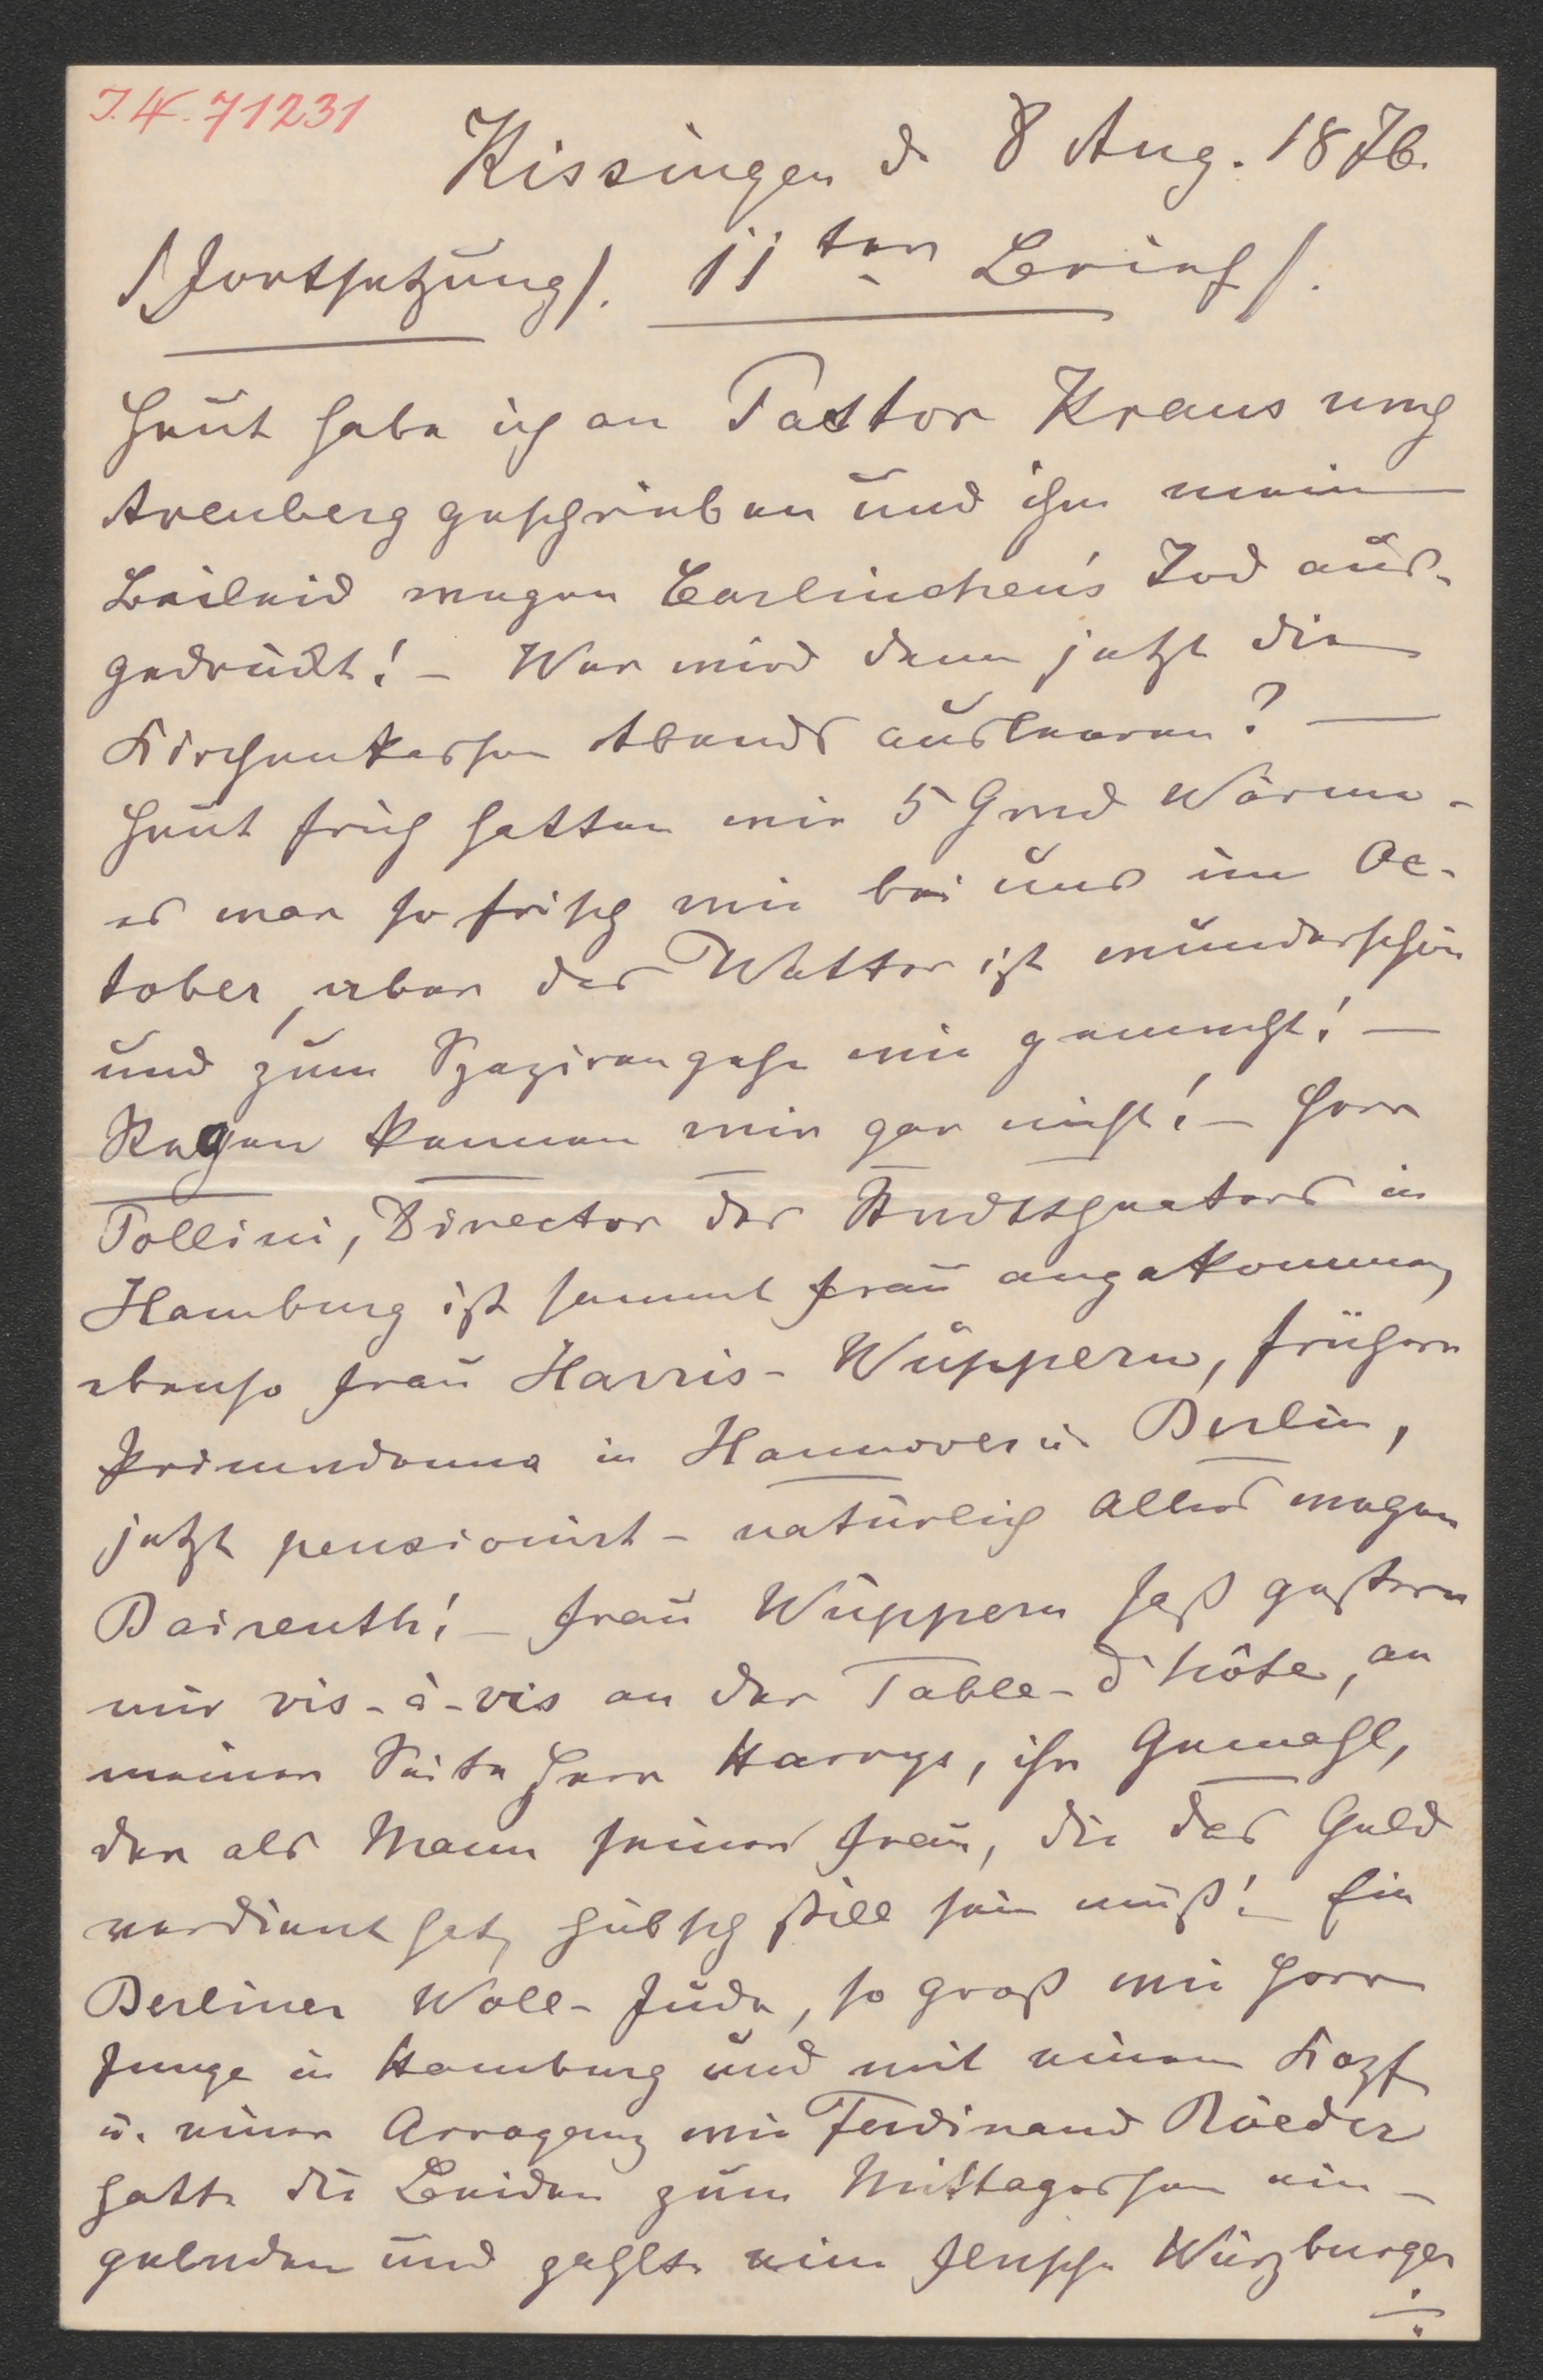 I.N. 71231
Kissingen d 8 Aug. 1876.
/Fortsetzung/. 11ten Brief/.
Heut habe ich an Pastor Kraus nach
Arenberg geschrieben und ihm mein
Beileid wegen Carlinchen's Tod aus-
gedrückt! – Wer wird denn jetzt die
Kirchenkassen Abends ausleeren? –
Heut früh hatten wir 5 Grad Wärme –
es war so frisch wie bei uns im Oc-
tober, aber das Wetter ist wunderschön
und zum Spazirengehn wie gemacht! –
Regen kennen wir gar nicht! – Herr
Pollini, Director des Stadttheaters in
Hamburg ist sammt Frau angekommen,
ebenso Frau Harris-Wippern, frühere
Primadonna in Hannover u. Berlin,
jetzt pensionirt – natürlich Alles wegen
Baireuth! – Frau Wippern saß gestern
mir vis-à-vis an der Table-d'hôte, an
meiner Seite Herr Harrys, ihr Gemahl,
der als Mann seiner Frau, die das Geld
verdient hat, hübsch still sein muß! Ein
Berliner Woll-Jude, so groß wie Herr
Junge in Hamburg und mit einem Kopf
u. einer Arroganz wie Ferdinand Röeder
hatte die Beiden zum Mittagessen ein-
geladen und zahlte eine Flasche Würzburger